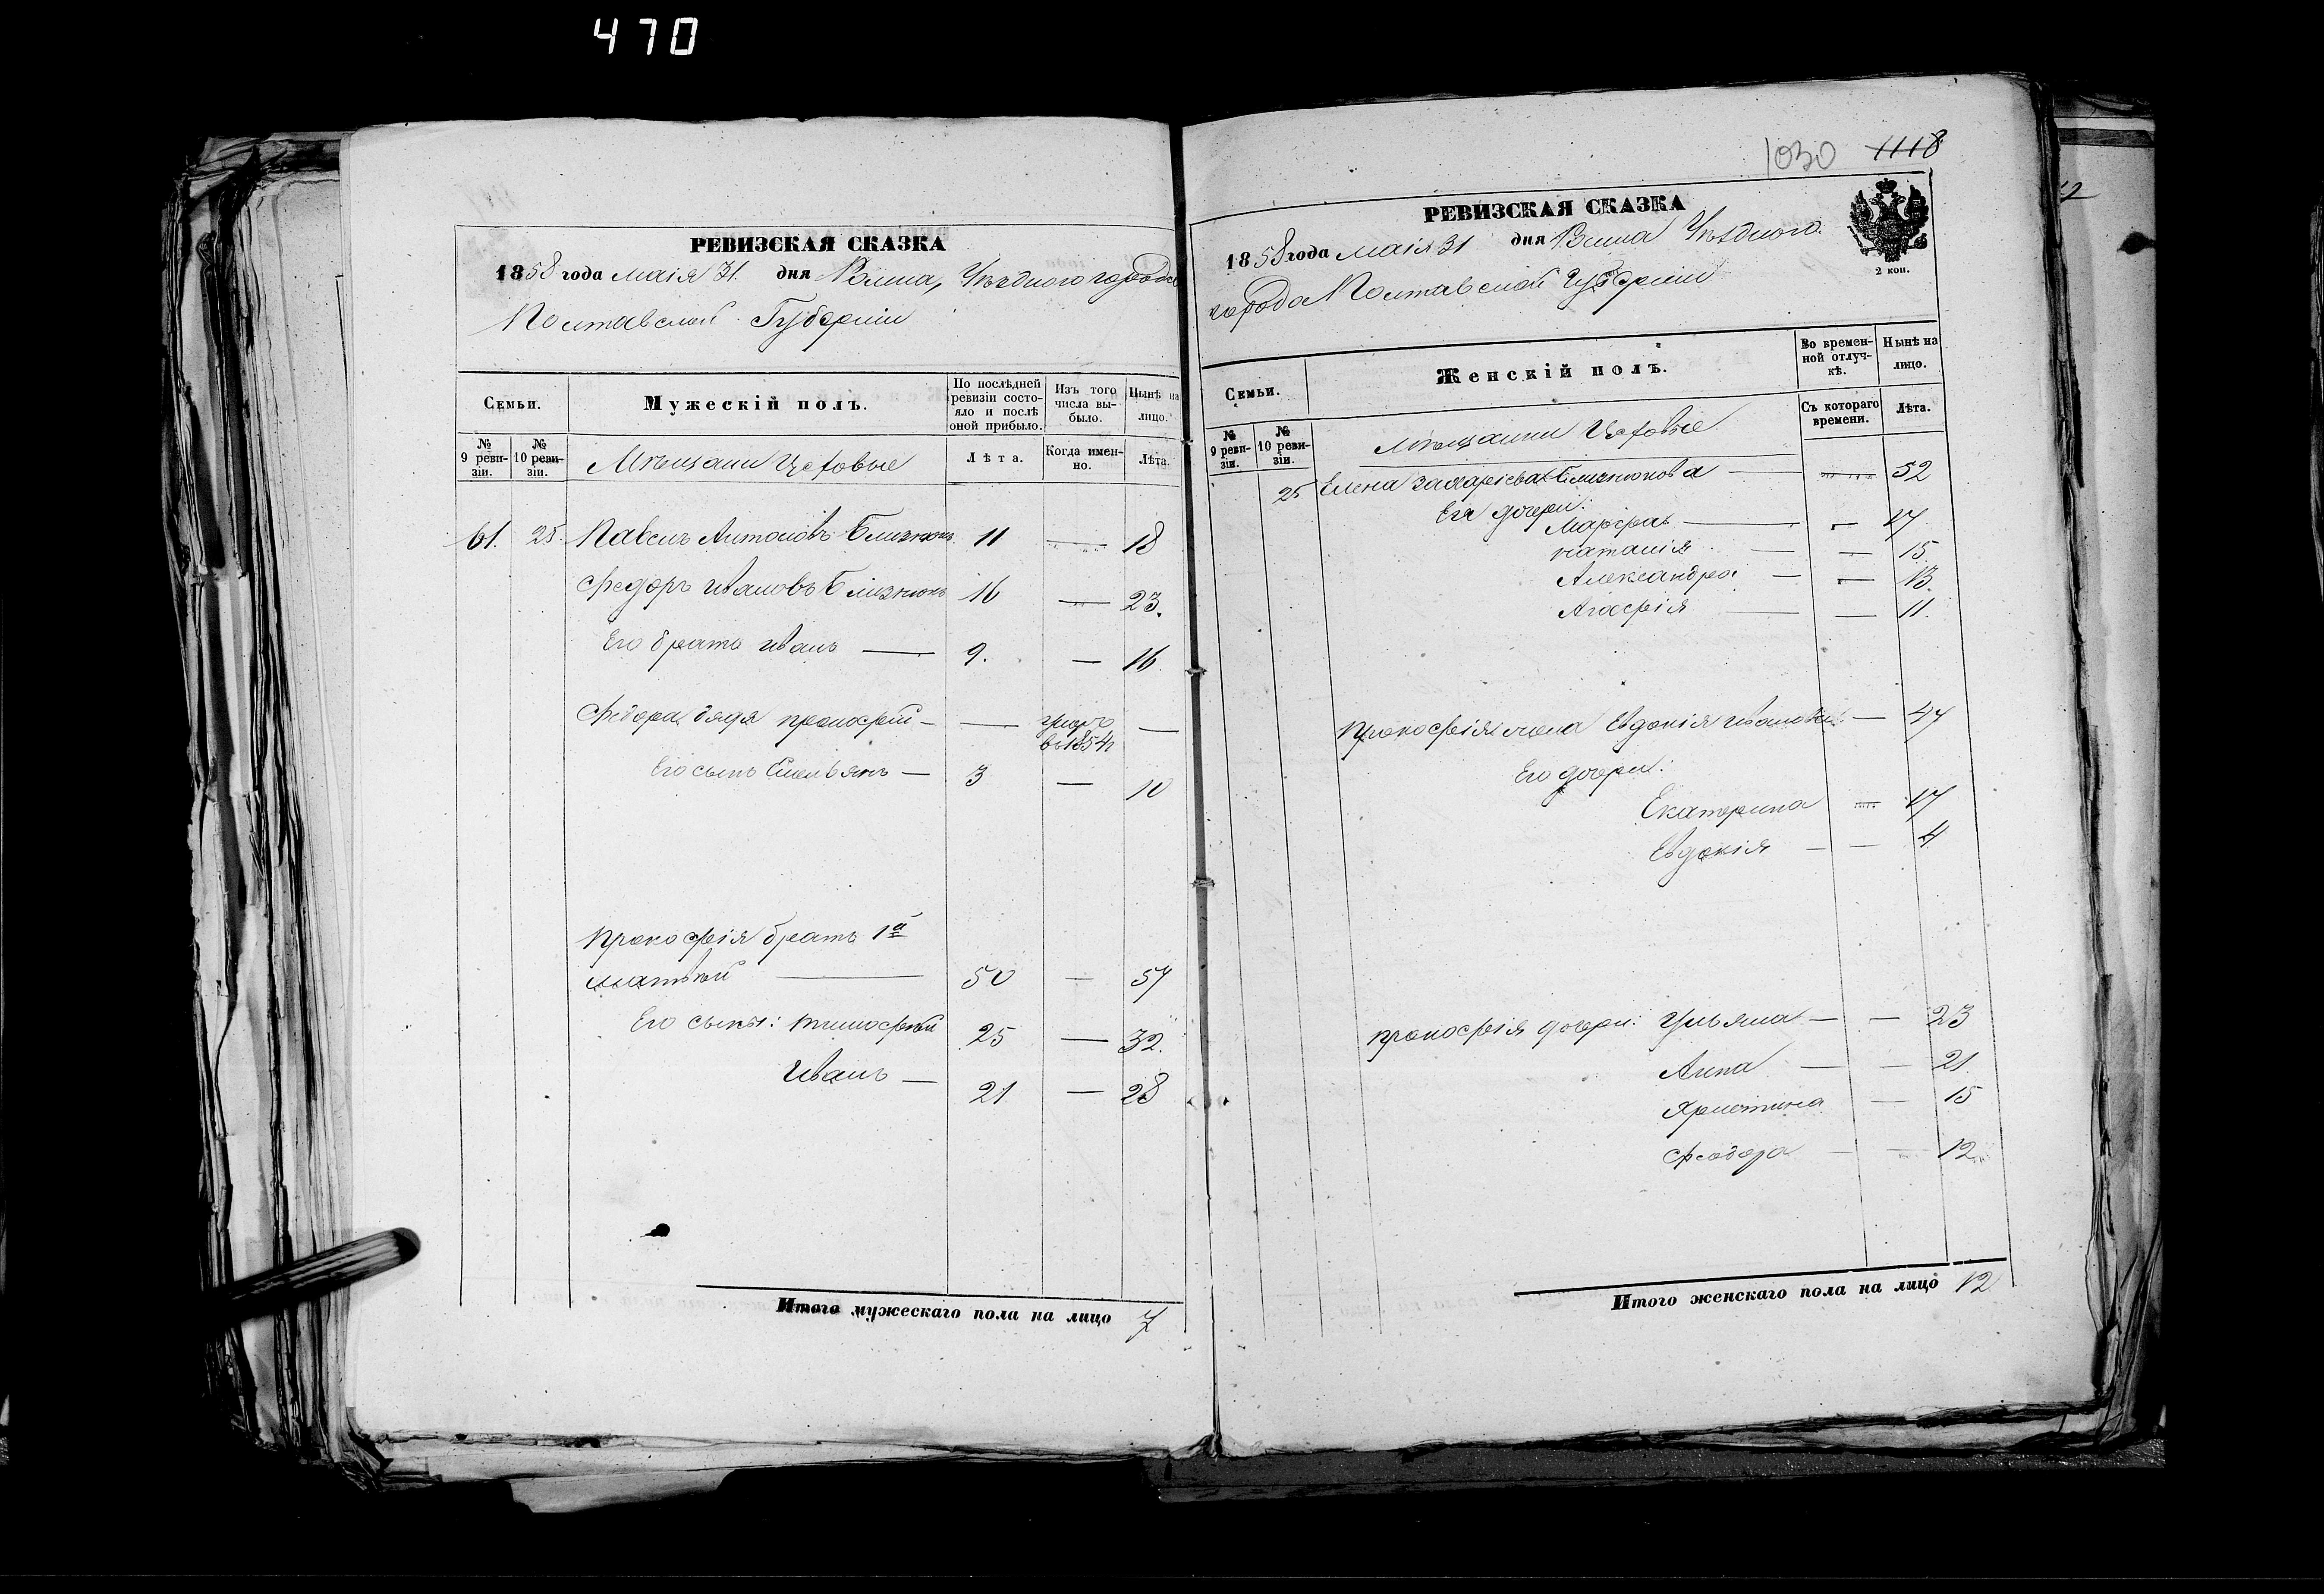 470
РЕВИЗСКАЯ СКАЗКА
1858 года маія 31. дня Ромна, Уѣзднаго города
Полтавской Губерніи
Семьи.
Мужескій полъ.
По послѣдней ревизіи состояло и послѣ оной прибыло.
Изъ того числа выбыло.
Нынѣ на лицо.
№ 9 ревизіи.
№ 10 ревизіи.
Мѣщани Цеховые
Лѣта.
Когда именно.
Лѣта.
61. 25. Павелъ Антоновъ Близнюкъ 11 — 18
Федоръ Ивановъ Близнюкъ 16 — 23.
Его братъ Иванъ — 9. — 16.
Федора дядя Прокофій — — умеръ въ 1854 —
Его сынъ Емельянъ — 3 — 10
Прокофія братъ 1й
Матвѣй — 50 — 57
Его сыны: Тимофѣй 25 — 32.
Иванъ — 21 — 28
Итого мужескаго пола на лицо 7
1030 1118
РЕВИЗСКАЯ СКАЗКА
1858 года маія 31 дня Ромна Уѣзднаго
города Полтавской Губерніи
2 коп.
Семьи.
Женскій полъ.
Во временной отлучкѣ.
Нынѣ на лицо.
№ 9 ревизіи.
№ 10 ревизіи.
Мѣщанки Цеховые
Съ котораго времени.
Лѣта.
25 Елена Захарієва Близнюкова — — 52
Ея дочери:
Марфа — — 17
Наталія — — 15
Александра — — 13.
Агафія — — 11.
Прокофія жена Евдокія Иванова — 47
Его дочери:
Екатерина — 17
Евдокія — — 4
Прокофія дочери: Ульяна — — 23
Анна — — 21
Христина — 15
Феодора — — 12
Итого женскаго пола на лицо 12